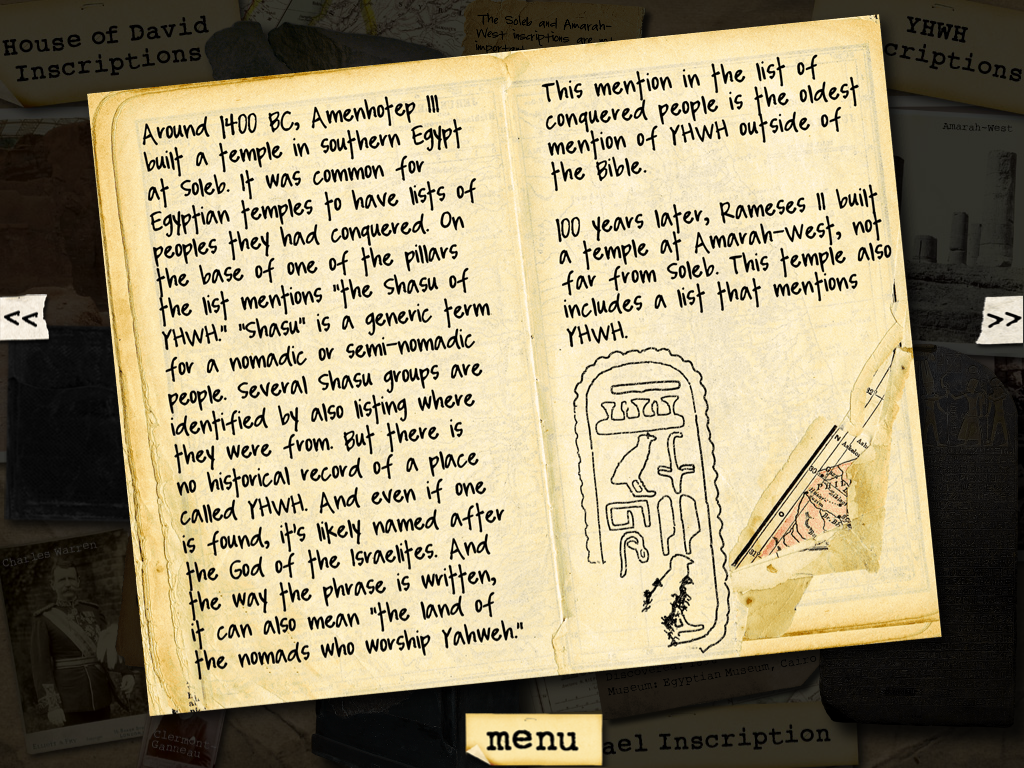 House of David
Inscriptions
The Soleb and Amarah-
West inscriptions are
YHWH
criptions
Amarah-West
Around 1400 BC, Amenhotep III
built a temple in southern Egypt
at Soleb. It was common for
Egyptian temples to have lists of
peoples they had conquered. On
the base of one of the pillars
the list mentions "the Shasu of
YHWH." "Shasu" is a generic term
for a nomadic or semi-nomadic
people. Several Shasu groups are
identified by also listing where
they were from. But there is
no historical record of a place
called YHWH. And even if one
is found, it's likely named after
the God of the Israelites. And
the way the phrase is written,
it can also mean "the land of
the nomads who worship Yahweh."
This mention in the list of
conquered people is the oldest
mention of YHWH outside of
the Bible.
100 years later, Rameses II built
a temple at Amarah-West, not
far from Soleb. This temple also
includes a list that mentions
YHWH.
<<
>>
Charles Warren
Clermont-
Ganneau
Museum: Egyptian Museum, Cairo
ael Inscription
menu